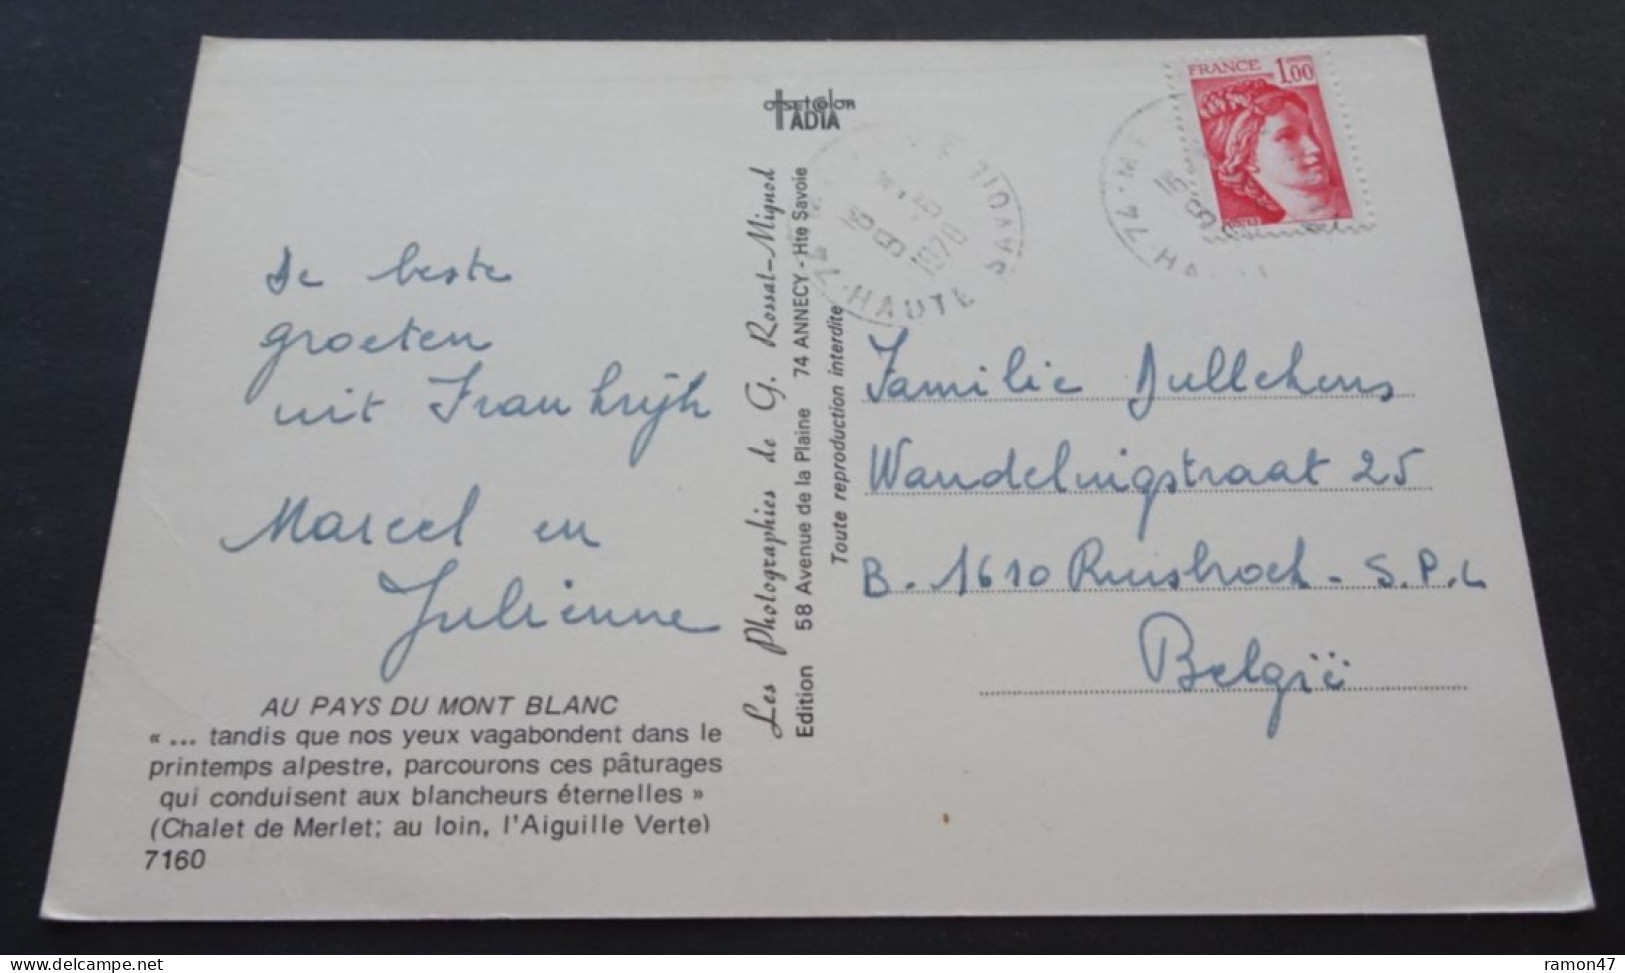 De beste
groeten
uit Frankrijk
Marcel en
Julienne
AU PAYS DU MONT BLANC
« ... tandis que nos yeux vagabondent dans le
printemps alpestre, parcourons ces pâturages
qui conduisent aux blancheurs éternelles »
(Chalet de Merlet; au loin, l'Aiguille Verte)
7160
OFFSETCOLOR
IADIA
Les Photographies de G. Rossat-Mignod
Edition 58 Avenue de la Plaine 74 ANNECY - Hte Savoie
Toute reproduction interdite
16
1978
74-HAUTE SAVOIE
FRANCE 1,00
POSTES
16
Familie Dullekens
Wandelingstraat 25
B. 1610 Ruisbroek - S.P.L
België
www.delcampe.net
ramon47